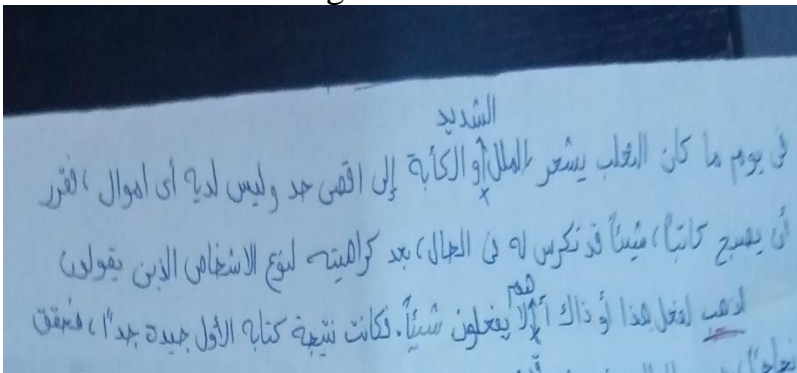 الشديد
فى يوم ما كان الثعلب يشعر الملل أو الكأبة إلى اقصى حد وليس لدية أى اموال ، فقرر
أن يصبح كاتباً، شيئاً قد تكرس له فى الحال، بعد كراهيته لنوع الاشخاص الذين يقولون
هم
لذهب لفعل هذا أو ذاك لا يفعلون شيئاً. فكانت نتيجة كتابة الأول جيدة جداً، فحقق